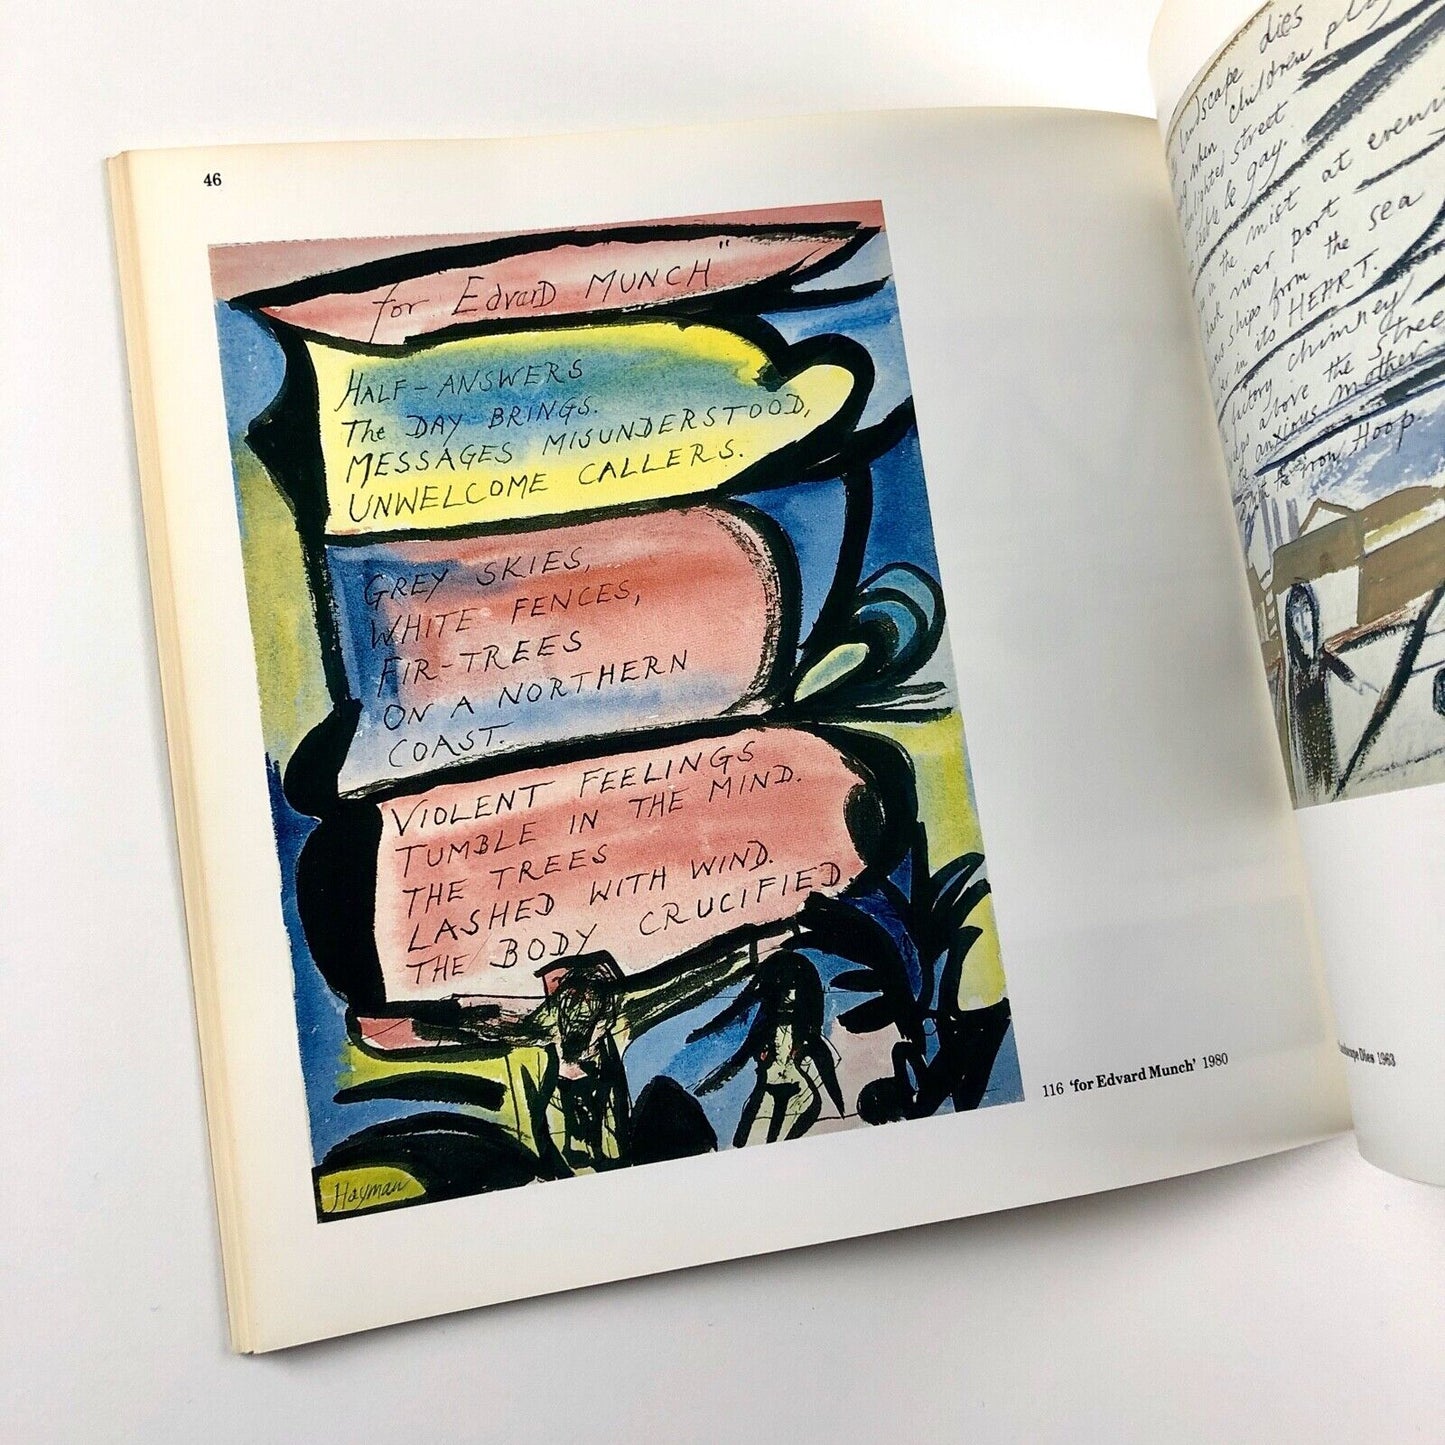 46
for "Edvard MUNCH"
HALF-ANSWERS
The DAY BRINGS.
MESSAGES MISUNDERSTOOD,
UNWELCOME CALLERS.
GREY SKIES,
WHITE FENCES,
FIR-TREES
ON A NORTHERN
COAST.
VIOLENT FEELINGS
TUMBLE IN THE MIND.
THE TREES
LASHED WITH WIND.
THE BODY CRUCIFIED.
Hayman
116 'for Edvard Munch' 1980
landscape dies
when children play
street
be gay.
in the mist at
river port
ships from the sea
in its HEART.
factory chimney
above the Street
anxious mother
the iron Hoop.
Dies 1963